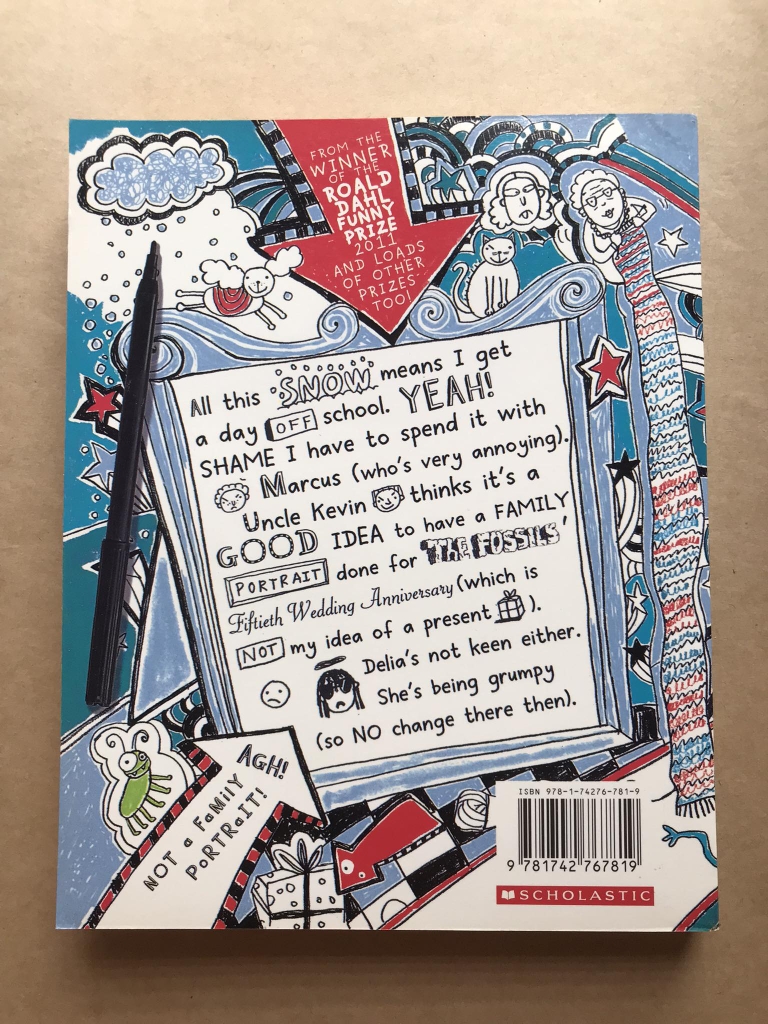 FROM THE
WINNER
OF THE
ROALD
DAHL
FUNNY
PRIZE
2011
AND LOADS
OF OTHER
PRIZES
TOO!
All this SNOW means I get
a day OFF school. YEAH!
SHAME I have to spend it with
Marcus (who's very annoying).
Uncle Kevin thinks it's a
GOOD IDEA to have a FAMILY
PORTRAIT done for 'THE FOSSILS'
Fiftieth Wedding Anniversary (which is
NOT my idea of a present ).
Delia's not keen either.
She's being grumpy
(so NO change there then).
AGH!
NOT a FaMiLY
PoRTRaiT!
ISBN 978-1-74276-781-9
9 781742 767819
SCHOLASTIC